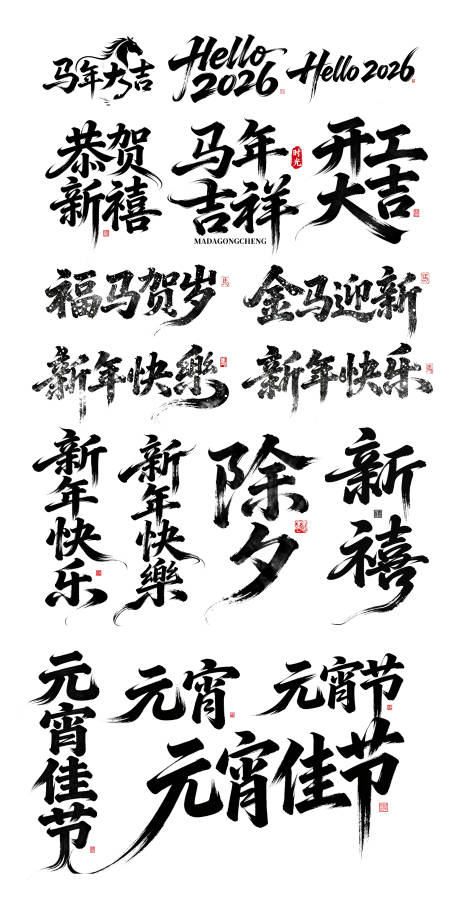 马年大吉
Hello
2026
Hello 2026
恭贺
新禧
马年
吉祥
时光
MADAGONGCHENG
开工
大吉
福马贺岁
金马迎新
新年快樂
新年快乐
新年快乐
新年快樂
除夕
新禧
元宵佳节
元宵
元宵节
元宵佳节